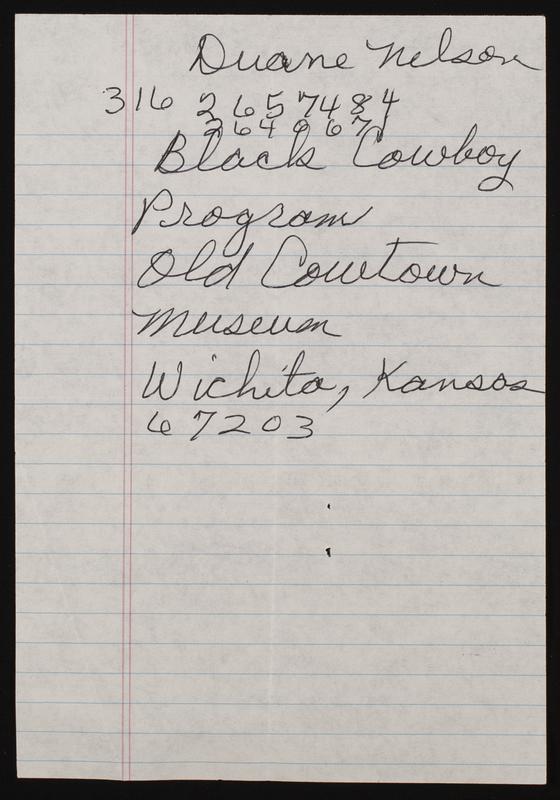 Duane Nelson
316 265 7484
264 0671
Black Cowboy
Program
Old Cowtown
Museum
Wichita, Kansas
67203